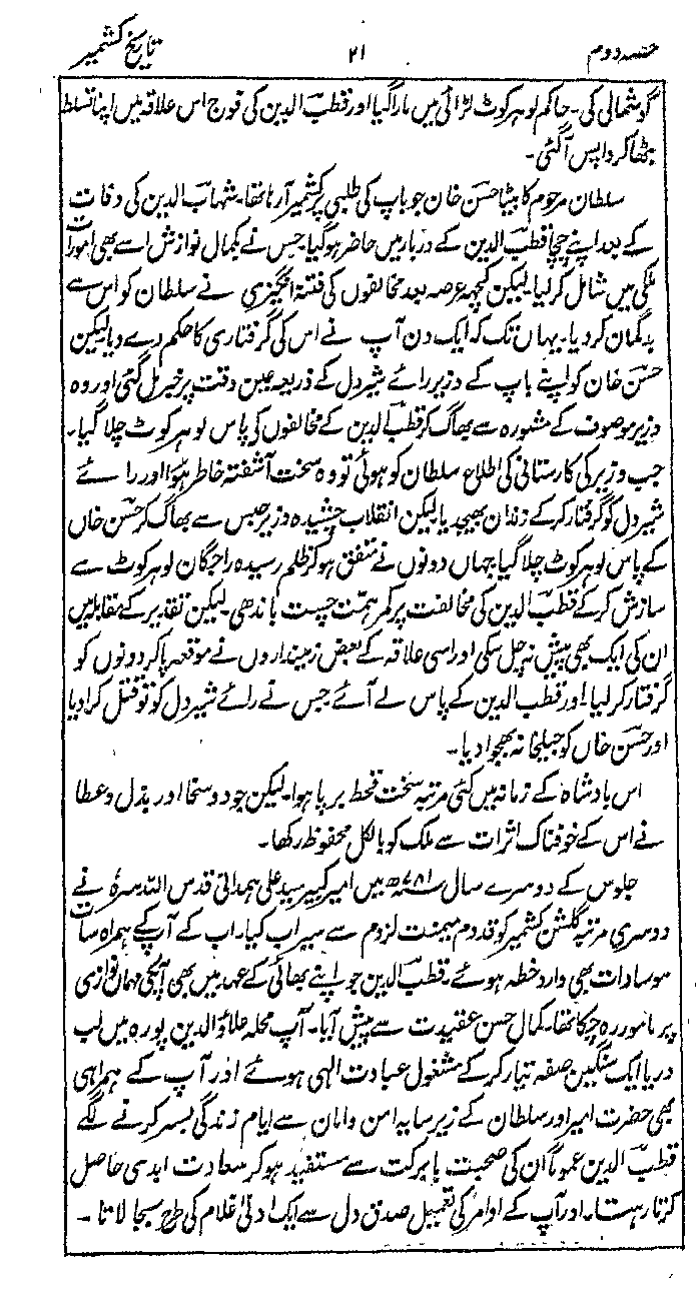 حصہ دوم ۲۱ تاریخ کشمیر
گوشمالی کی۔ حاکم لوہر کوٹ لڑائی میں مارا گیا اور قطب الدین کی فوج اس علاقہ میں اپنا تسلط
بٹھا کر واپس آگئی۔
سلطان مرحوم کا بیٹا حسن خان جو باپ کی طلبی پر کشمیر آرہا تھا۔ شہاب الدین کی وفات
کے بعد اپنے چچا قطب الدین کے دربار میں حاضر ہو گیا جس نے بکمال نوازش اسے بھی امورات
ملکی میں شامل کر لیا۔ لیکن کچھ عرصہ بعد مخالفوں کی فتنہ انگیزی نے سلطان کو اس سے
بدگمان کر دیا۔ یہاں تک کہ ایک دن آپ نے اس کی گرفتاری کا حکم دے دیا۔ لیکن
حسن خان کو اپنے باپ کے وزیر رائے شیر دل کے ذریعہ عین وقت پر خبر مل گئی اور وہ
وزیر موصوف کے مشورہ سے بھاگ کر قطب الدین کے مخالفوں کی پاس لوہر کوٹ چلا گیا۔
جب وزیر کی کارستانی کی اطلاع سلطان کو ہوئی تو وہ سخت آشفتہ خاطر ہوا اور رائے
شیر دل کو گرفتار کر کے زندان بھیجدیا لیکن انقلاب چشیدہ وزیر حبس سے بھاگ کر حسن خاں
کے پاس لوہر کوٹ چلا گیا۔ جہاں دونوں نے متفق ہو کر ظلم رسیدہ راجگان لوہر کوٹ سے
سازش کر کے قطب الدین کی مخالفت پر کمر ہمت چست باندھی۔ لیکن تقدیر کے مقابلہ میں
ان کی ایک بھی پیش نہ چل سکی اور اسی علاقہ کے بعض زمینداروں نے موقعہ پا کر دونوں کو
گرفتار کر لیا! اور قطب الدین کے پاس لے آئے جس نے رائے شیر دل کو تو قتل کرا دیا
اور حسن خاں کو جیلخانہ بھجوا دیا۔
اس بادشاہ کے زمانہ میں کئی مرتبہ سخت قحط برپا ہوا۔ لیکن جود و سخا اور بذل و عطا
نے اس کے خوفناک اثرات سے ملک کو بالکل محفوظ رکھا۔
جلوس کے دوسرے سال ۷۸۱ھ میں امیر کبیر سید علی ہمدانی قدس اللہ سرہٗ نے
دوسری مرتبہ گلشن کشمیر کو قدوم میمنت لزوم سے سیراب کیا۔ اب کے آپ کے ہمراہ سات
سو سادات بھی وارد خطہ ہوئے۔ قطب الدین جو اپنے بھائی کے عہد میں بھی آپکی مہمان نوازی
پر مامور رہ چکا تھا۔ کمال حسن عقیدت سے پیش آیا۔ آپ محلہ علاؤ الدین پورہ میں لب
دریا ایک سنگین صفہ تیار کر کے مشغول عبادت الٰہی ہوئے اور آپ کے ہمراہی
بھی حضرت امیر اور سلطان کے زیر سایہ امن و امان سے ایام زندگی بسر کرنے لگے
قطب الدین عموماً ان کی صحبت بابرکت سے مستفید ہو کر سعادت ابدی حاصل
کرتا رہتا۔ اور آپ کے اوامر کی تعمیل صدق دل سے ایک ادنیٰ غلام کی طرح بجا لاتا۔